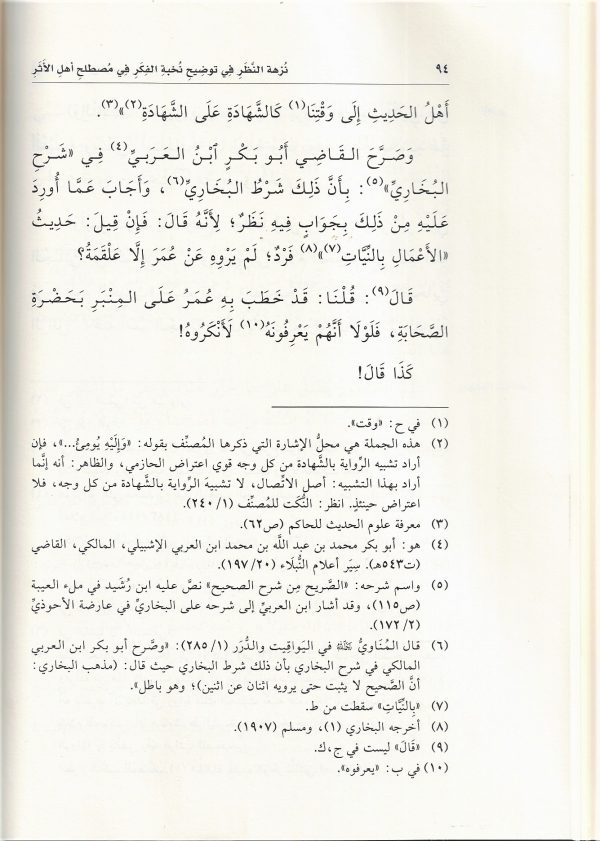 ٩٤ نُزهة النَّظَرِ فِي توضِيحِ نُخبةِ الفِكَرِ فِي مُصطلحِ أهلِ الأَثَرِ
أَهْلُ الحَدِيثِ إِلَى وَقْتِنَا(١) كَالشَّهَادَةِ عَلَى الشَّهَادَةِ(٢)»(٣).
وَصَرَّحَ القَاضِي أَبُو بَكْرٍ ٱبْنُ العَرَبِيِّ(٤) فِي «شَرْحِ
البُخَارِيِّ»(٥): بِأَنَّ ذَلِكَ شَرْطُ البُخَارِيِّ(٦)، وَأَجَابَ عَمَّا أُورِدَ
عَلَيْهِ مِنْ ذَلِكَ بِجَوَابٍ فِيهِ نَظَرٌ؛ لِأَنَّهُ قَالَ: فَإِنْ قِيلَ: حَدِيثُ
«الأَعْمَالِ بِالنِّيَّاتِ(٧)»(٨) فَرْدٌ؛ لَمْ يَرْوِهِ عَنْ عُمَرَ إِلَّا عَلْقَمَةُ؟
قَالَ(٩): قُلْنَا: قَدْ خَطَبَ بِهِ عُمَرُ عَلَى المِنْبَرِ بَحَضْرَةِ
الصَّحَابَةِ، فَلَوْلَا أَنَّهُمْ يَعْرِفُونَهُ(١٠) لَأَنْكَرُوهُ!
كَذَا قَالَ!
(١) في ح: «وقت».
(٢) هذه الجملة هي محلُّ الإشارة التي ذكرها المُصنِّف بقوله: «وَإِلَيْهِ يُومِئُ...»، فإن
أراد تشبيه الرِّواية بالشَّهادة من كل وجه قوي اعتراض الحازمي، والظاهر: أنه إنَّما
أراد بهذا التشبيه: أصل الاتِّصال، لا تشبيهَ الرِّواية بالشَّهادة من كل وجه، فلا
اعتراض حينئذٍ. انظر: النُّكَت للمُصنِّف (١/ ٢٤٠).
(٣) معرفة علوم الحديث للحاكم (ص٦٢).
(٤) هو: أبو بكر محمد بن عبد اللَّه بن محمد ابن العربي الإشبيلي، المالكي، القاضي
(ت٥٤٣هـ). سِيَر أعلام النُّبَلَاء (٢٠/ ١٩٧).
(٥) واسم شرحه: «الصَّريح مِن شرح الصحيح» نصَّ عليه ابن رُشَيد في ملء العيبة
(ص١١٥)، وقد أشار ابن العربيِّ إلى شرحه على البخاريِّ في عارضة الأحوذيِّ
(٢/ ١٧٢).
(٦) قال المُنَاويُّ ﵀ في اليَواقِيت والدُّرَر (١/ ٢٨٥): «وصَّرح أبو بكر ابن العربي
المالكي في شرح البخاري بأن ذلك شرط البخاري حيث قال: (مذهب البخاري:
أنَّ الصَّحيح لا يثبت حتى يرويه اثنان عن اثنين)؛ وهو باطل».
(٧) «بِالنِّيَّاتِ» سقطت من ط.
(٨) أخرجه البخاري (١)، ومسلم (١٩٠٧).
(٩) «قَالَ» ليست في ج،ك.
(١٠) في ب: «يعرفوه».